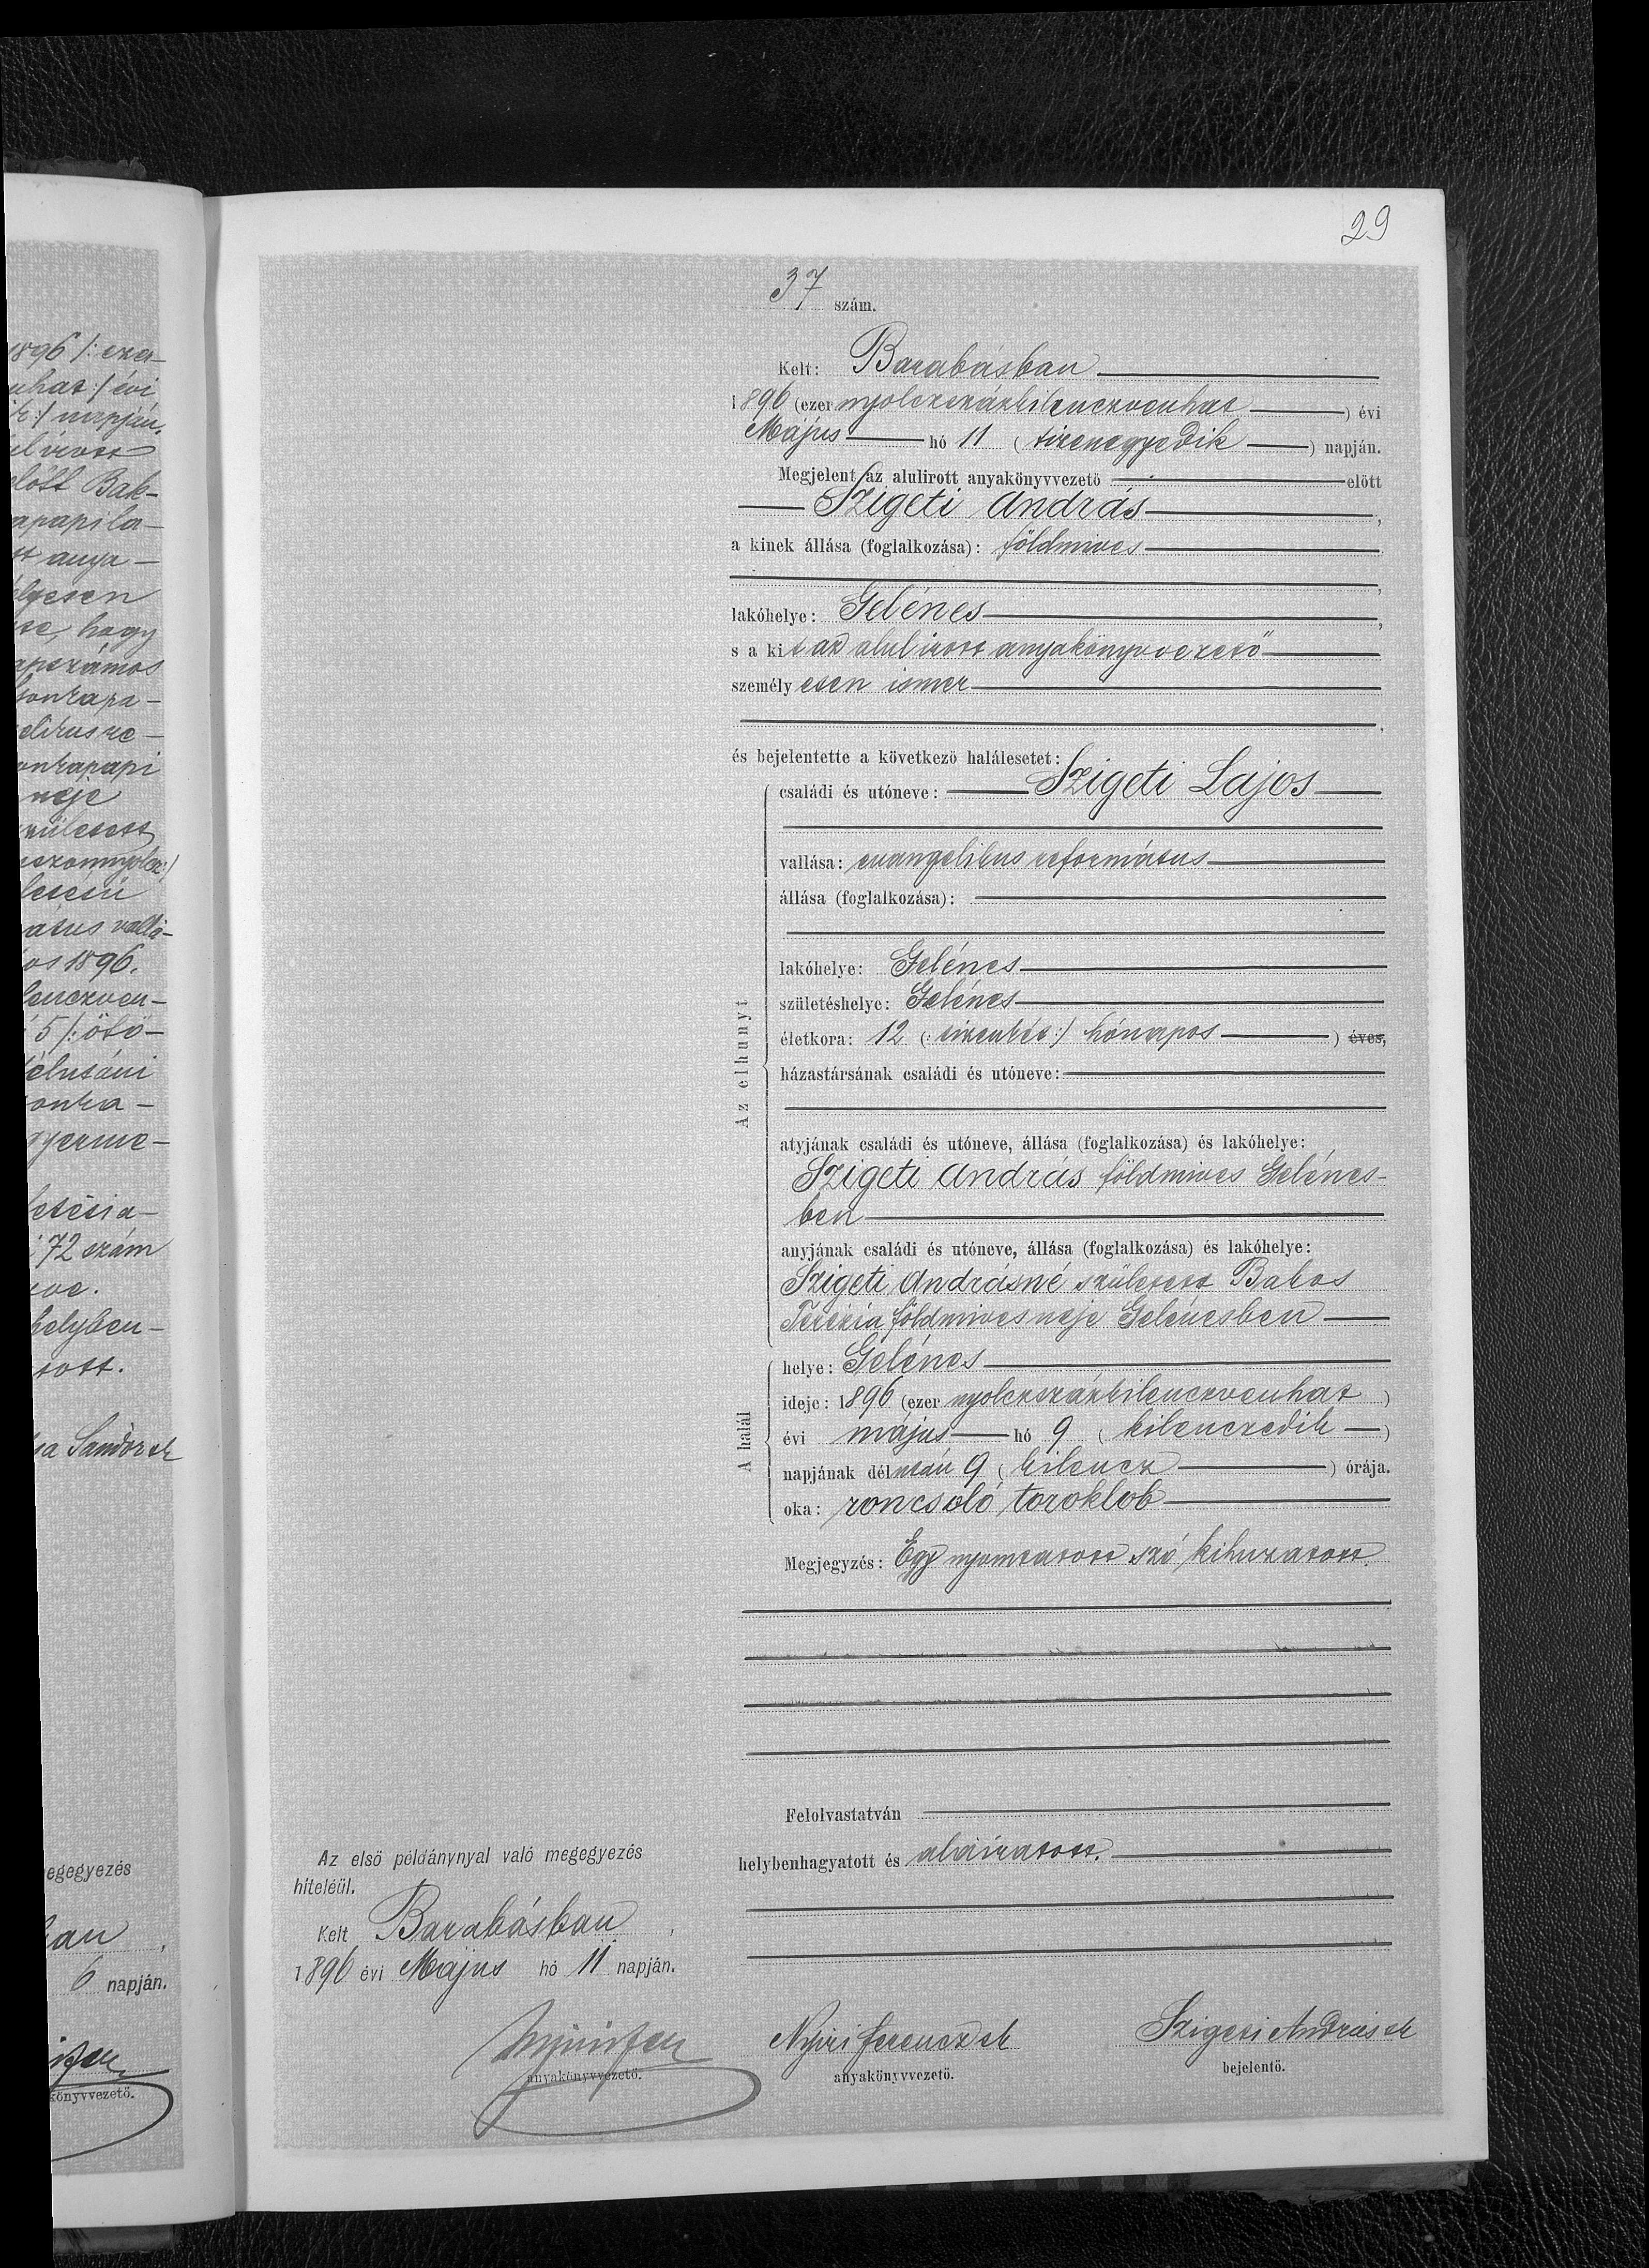 29
37 szám.
Kelt: Barabásban
1896 (ezer nyolczszázkilenczvenhat) évi
Május hó 11 (tizenegyedik) napján.
Megjelent az alulirott anyakönyvvezető előtt
Szigeti András,
a kinek állása (foglalkozása): földmives
lakóhelye: Gelénes,
s a kit az alulirott anyakönyvvezető
személyesen ismer
és bejelentette a következő halálesetet:
Az elhunyt
családi és utóneve: Szigeti Lajos
vallása: evangelikus református
állása (foglalkozása):
lakóhelye: Gelénes
születéshelye: Gelénes
életkora: 12 (:tizenkét:) hónapos ) éves,
házastársának családi és utóneve:
atyjának családi és utóneve, állása (foglalkozása) és lakóhelye:
Szigeti András földmives Gelénes-
ben
anyjának családi és utóneve, állása (foglalkozása) és lakóhelye:
Szigeti Andrásné született Bakos
Terézia földmives neje Gelénesben
A halál
helye: Gelénes
ideje: 1896 (ezer nyolczszázkilenczvenhat)
évi május hó 9 (kilenczedik)
napjának délután 9 (kilencz) órája.
oka: roncsoló toroklob
Megjegyzés: Egy nyomtatott szó kihuzatott.
Felolvastatván
helybenhagyatott és aláiratott.
Az első példánynyal való megegyezés
hiteléül.
Kelt Barabásban,
1896 évi Május hó 11 napján.
anyakönyvvezető.
Nyiri Ferencz sk
anyakönyvvezető.
Szigeti András sk
bejelentő.
1896 /: ezer-
évi
napján.
előtt Bak-
anya-
hogy
neje
72 szám
helyben-
Sándor sk
megegyezés
6 napján.